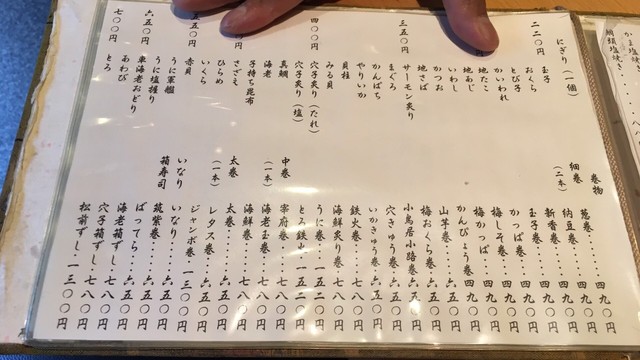 にぎり（一個）
二二〇円
玉子
おくら
とび子
かいわれ
地たこ
地あじ
いわし
かつお
地さば
三五〇円
サーモン炙り
まぐろ
かんぱち
やりいか
貝柱
みる貝
四〇〇円
穴子炙り（たれ）
穴子炙り（塩）
真鯛
海老
子持ち昆布
さざえ
ひらめ
いくら
五〇円
赤貝
うに軍艦
六五〇円
うに塩握り
車海老おどり
あわび
七〇〇円
とろ
巻物
細巻（二本）
葱巻……四九〇円
納豆巻……四九〇円
新香巻……四九〇円
玉子巻……四九〇円
かっぱ巻……四九〇円
梅しそ巻……四九〇円
梅かっぱ……四九〇円
かんぴょう巻 四九〇円
山芋巻……六五〇円
梅おくら巻……六五〇円
小鳥居小路巻 六五〇円
穴きゅう巻……六五〇円
いかきゅう巻 六五〇円
鉄火巻……七八〇円
海鮮炙り巻 七八〇円
うに巻……一五二〇円
とろ鉄火 一五二〇円
中巻（一本）
宰府巻……七八〇円
海老玉巻……七八〇円
海鮮巻……七八〇円
太巻（一本）
太巻……六五〇円
レタス巻……六五〇円
ジャンボ巻 一三〇〇円
いなり
いなり……六五〇円
箱寿司
筑紫巻……六五〇円
ばってら……六五〇円
海老箱ずし 七八〇円
穴子箱ずし 七八〇円
松前ずし 一三〇〇円
鯛頭塩焼き